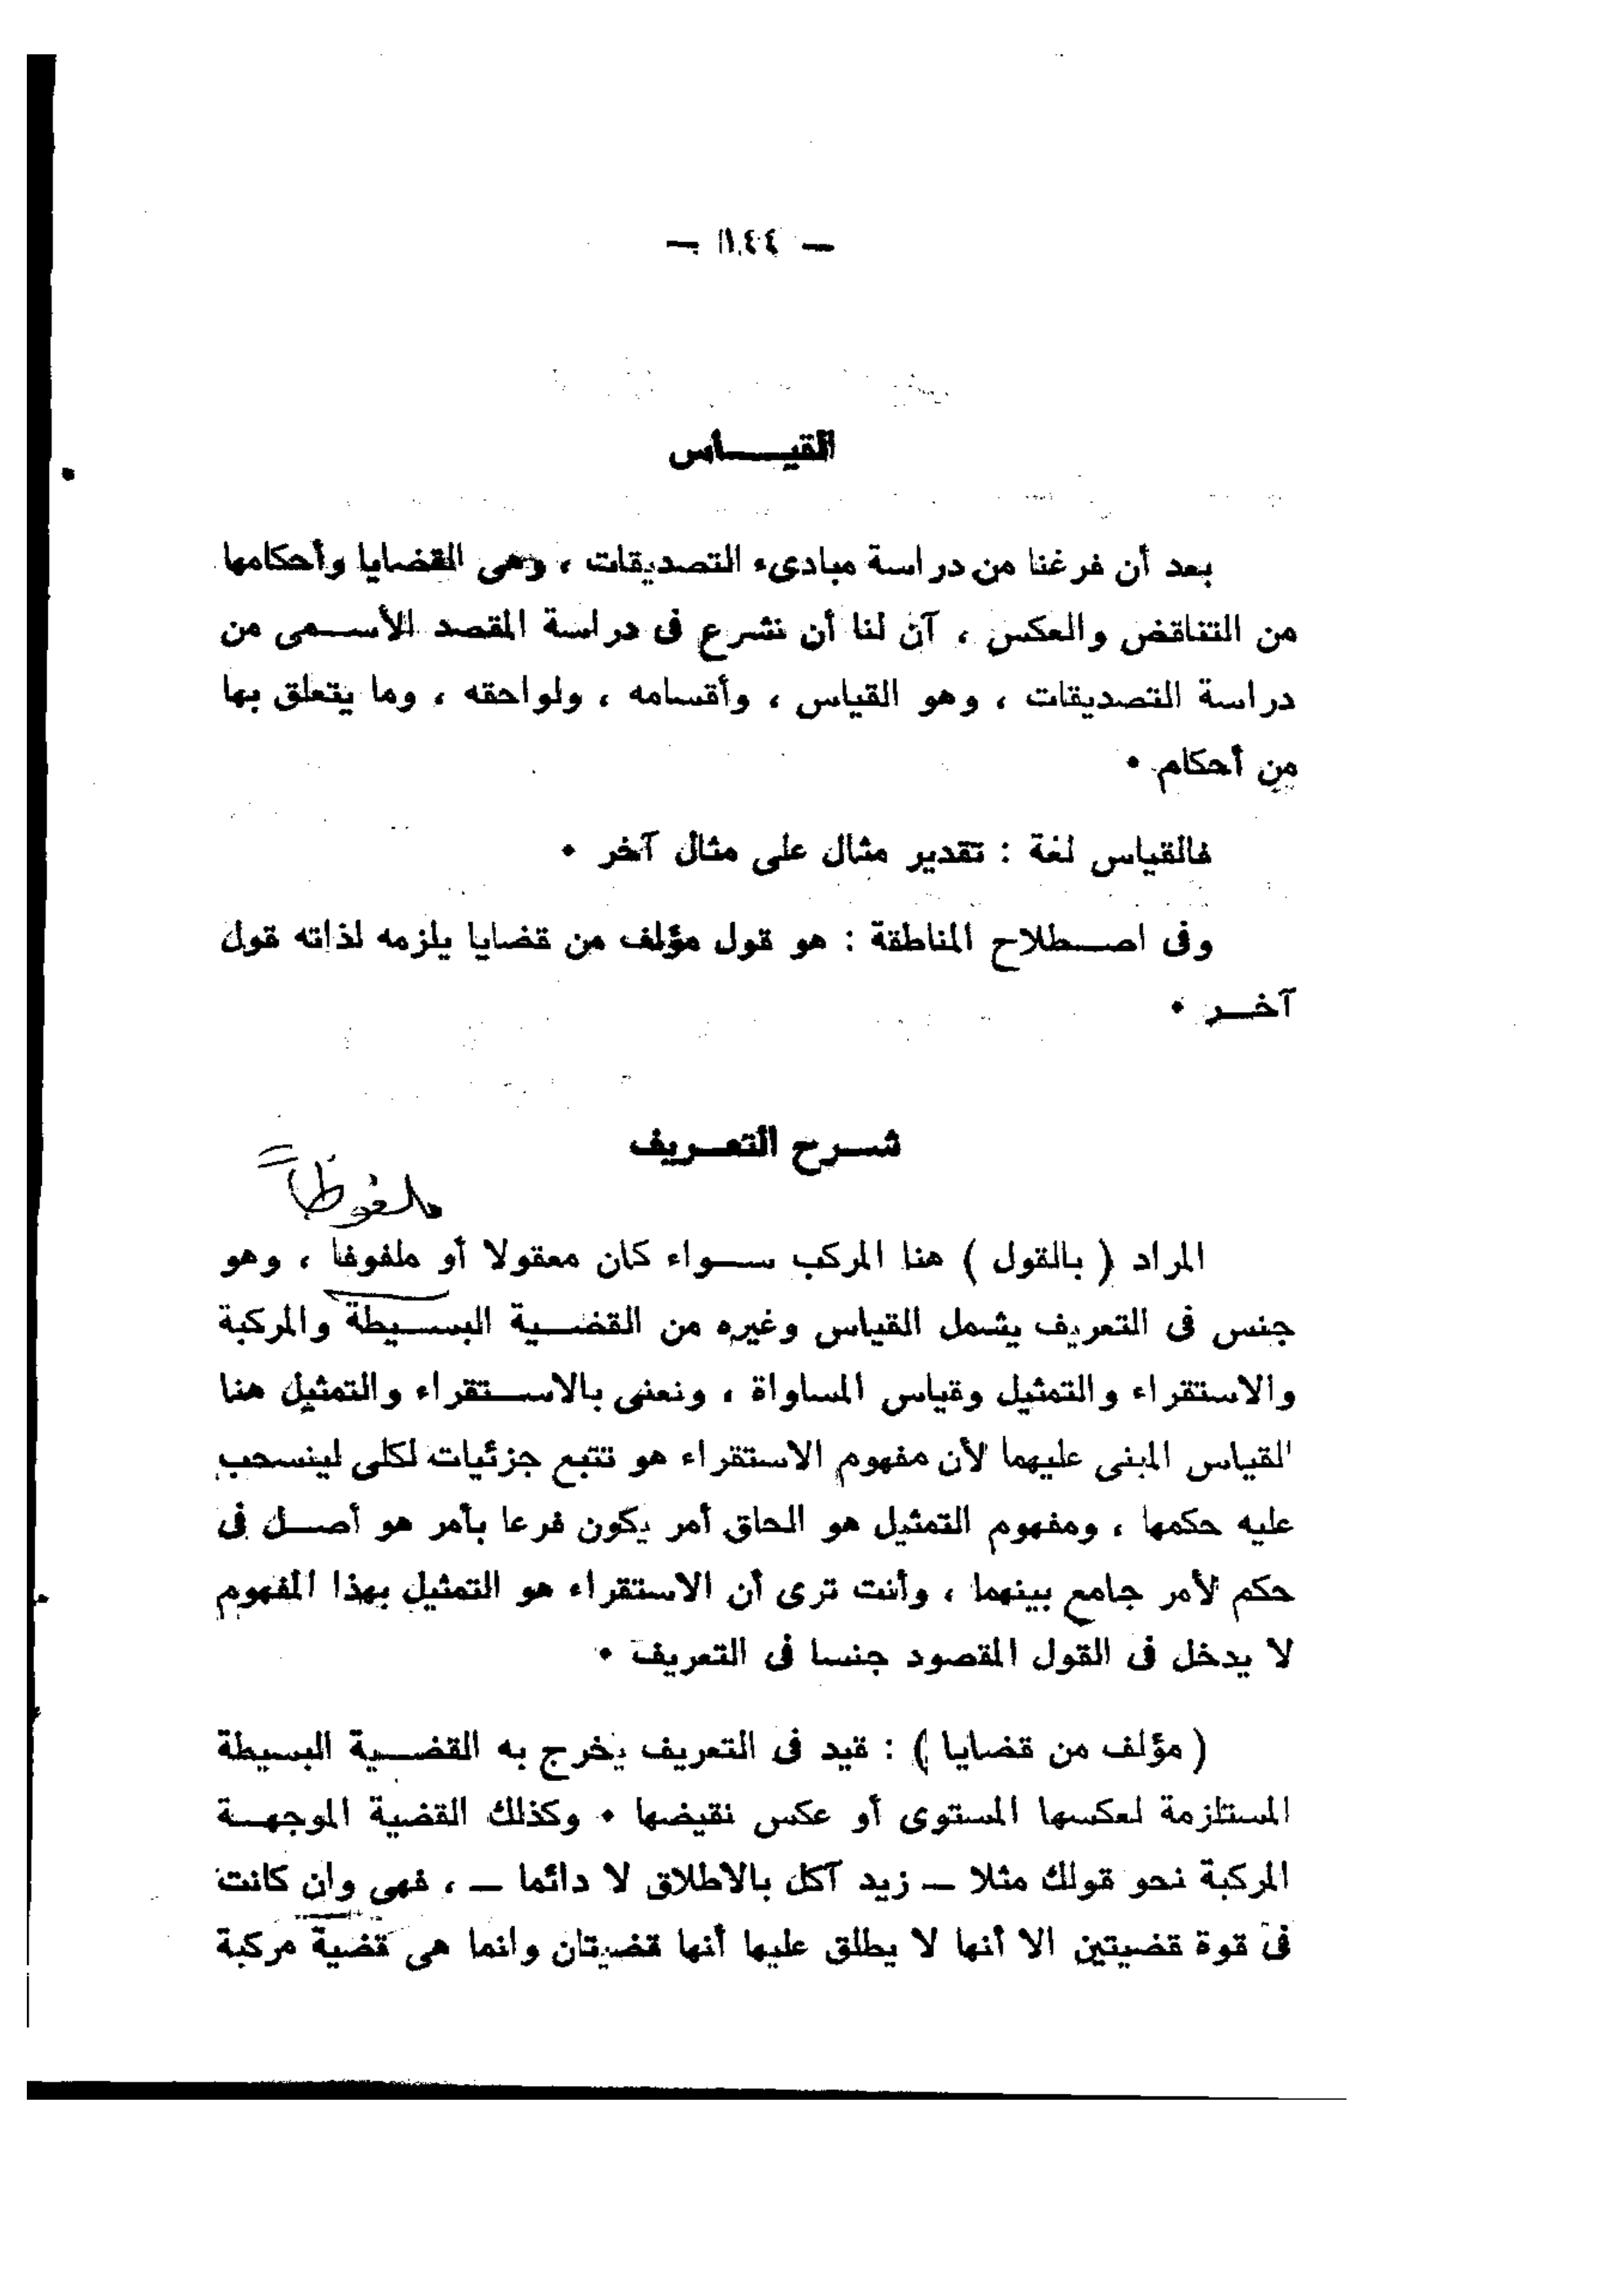 — ١٤٤ —
القيـــاس
بعد أن فرغنا من دراسة مبادىء التصديقات ، وهى القضايا وأحكامها
من التناقض والعكس ، آن لنا أن نشرع فى دراسة المقصد الأســمى من
دراسة التصديقات ، وهو القياس ، وأقسامه ، ولواحقه ، وما يتعلق بها
من أحكام •
فالقياس لغة : تقدير مثال على مثال آخر •
وفى اصــطلاح المناطقة : هو قول مؤلف من قضايا يلزمه لذاته قول
آخــر •
شــرح التعــريف
ملفوظاً
المراد ( بالقول ) هنا المركب ســواء كان معقولا أو ملفوفا ، وهو
جنس فى التعريف يشمل القياس وغيره من القضــية البســيطة والمركبة
والاستقراء والتمثيل وقياس المساواة ، ونعنى بالاســتقراء والتمثيل هنا
القياس المبنى عليهما لأن مفهوم الاستقراء هو تتبع جزئيات لكلى لينسحب
عليه حكمها ، ومفهوم التمثيل هو الحاق أمر يكون فرعا بأمر هو أصــل فى
حكم لأمر جامع بينهما ، وأنت ترى أن الاستقراء هو التمثيل بهذا المفهوم
لا يدخل فى القول المقصود جنسا فى التعريف •
( مؤلف من قضايا ) : قيد فى التعريف يخرج به القضــية البسيطة
المستلزمة لعكسها المستوى أو عكس نقيضها • وكذلك القضية الموجهــة
المركبة نحو قولك مثلا — زيد آكل بالاطلاق لا دائما — ، فهى وان كانت
فى قوة قضيتين الا أنها لا يطلق عليها أنها قضيتان وانما هى قضية مركبة